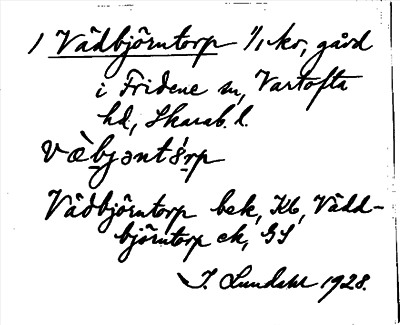 1 Vådbjörntorp 1/1 kr, gård
i Fridene sn, Vartofta
hd, Skarab. l.
Vädbjörntorp bek, Kb, Vädd-
björntorp ek, GS
I. Lundahl 1928.